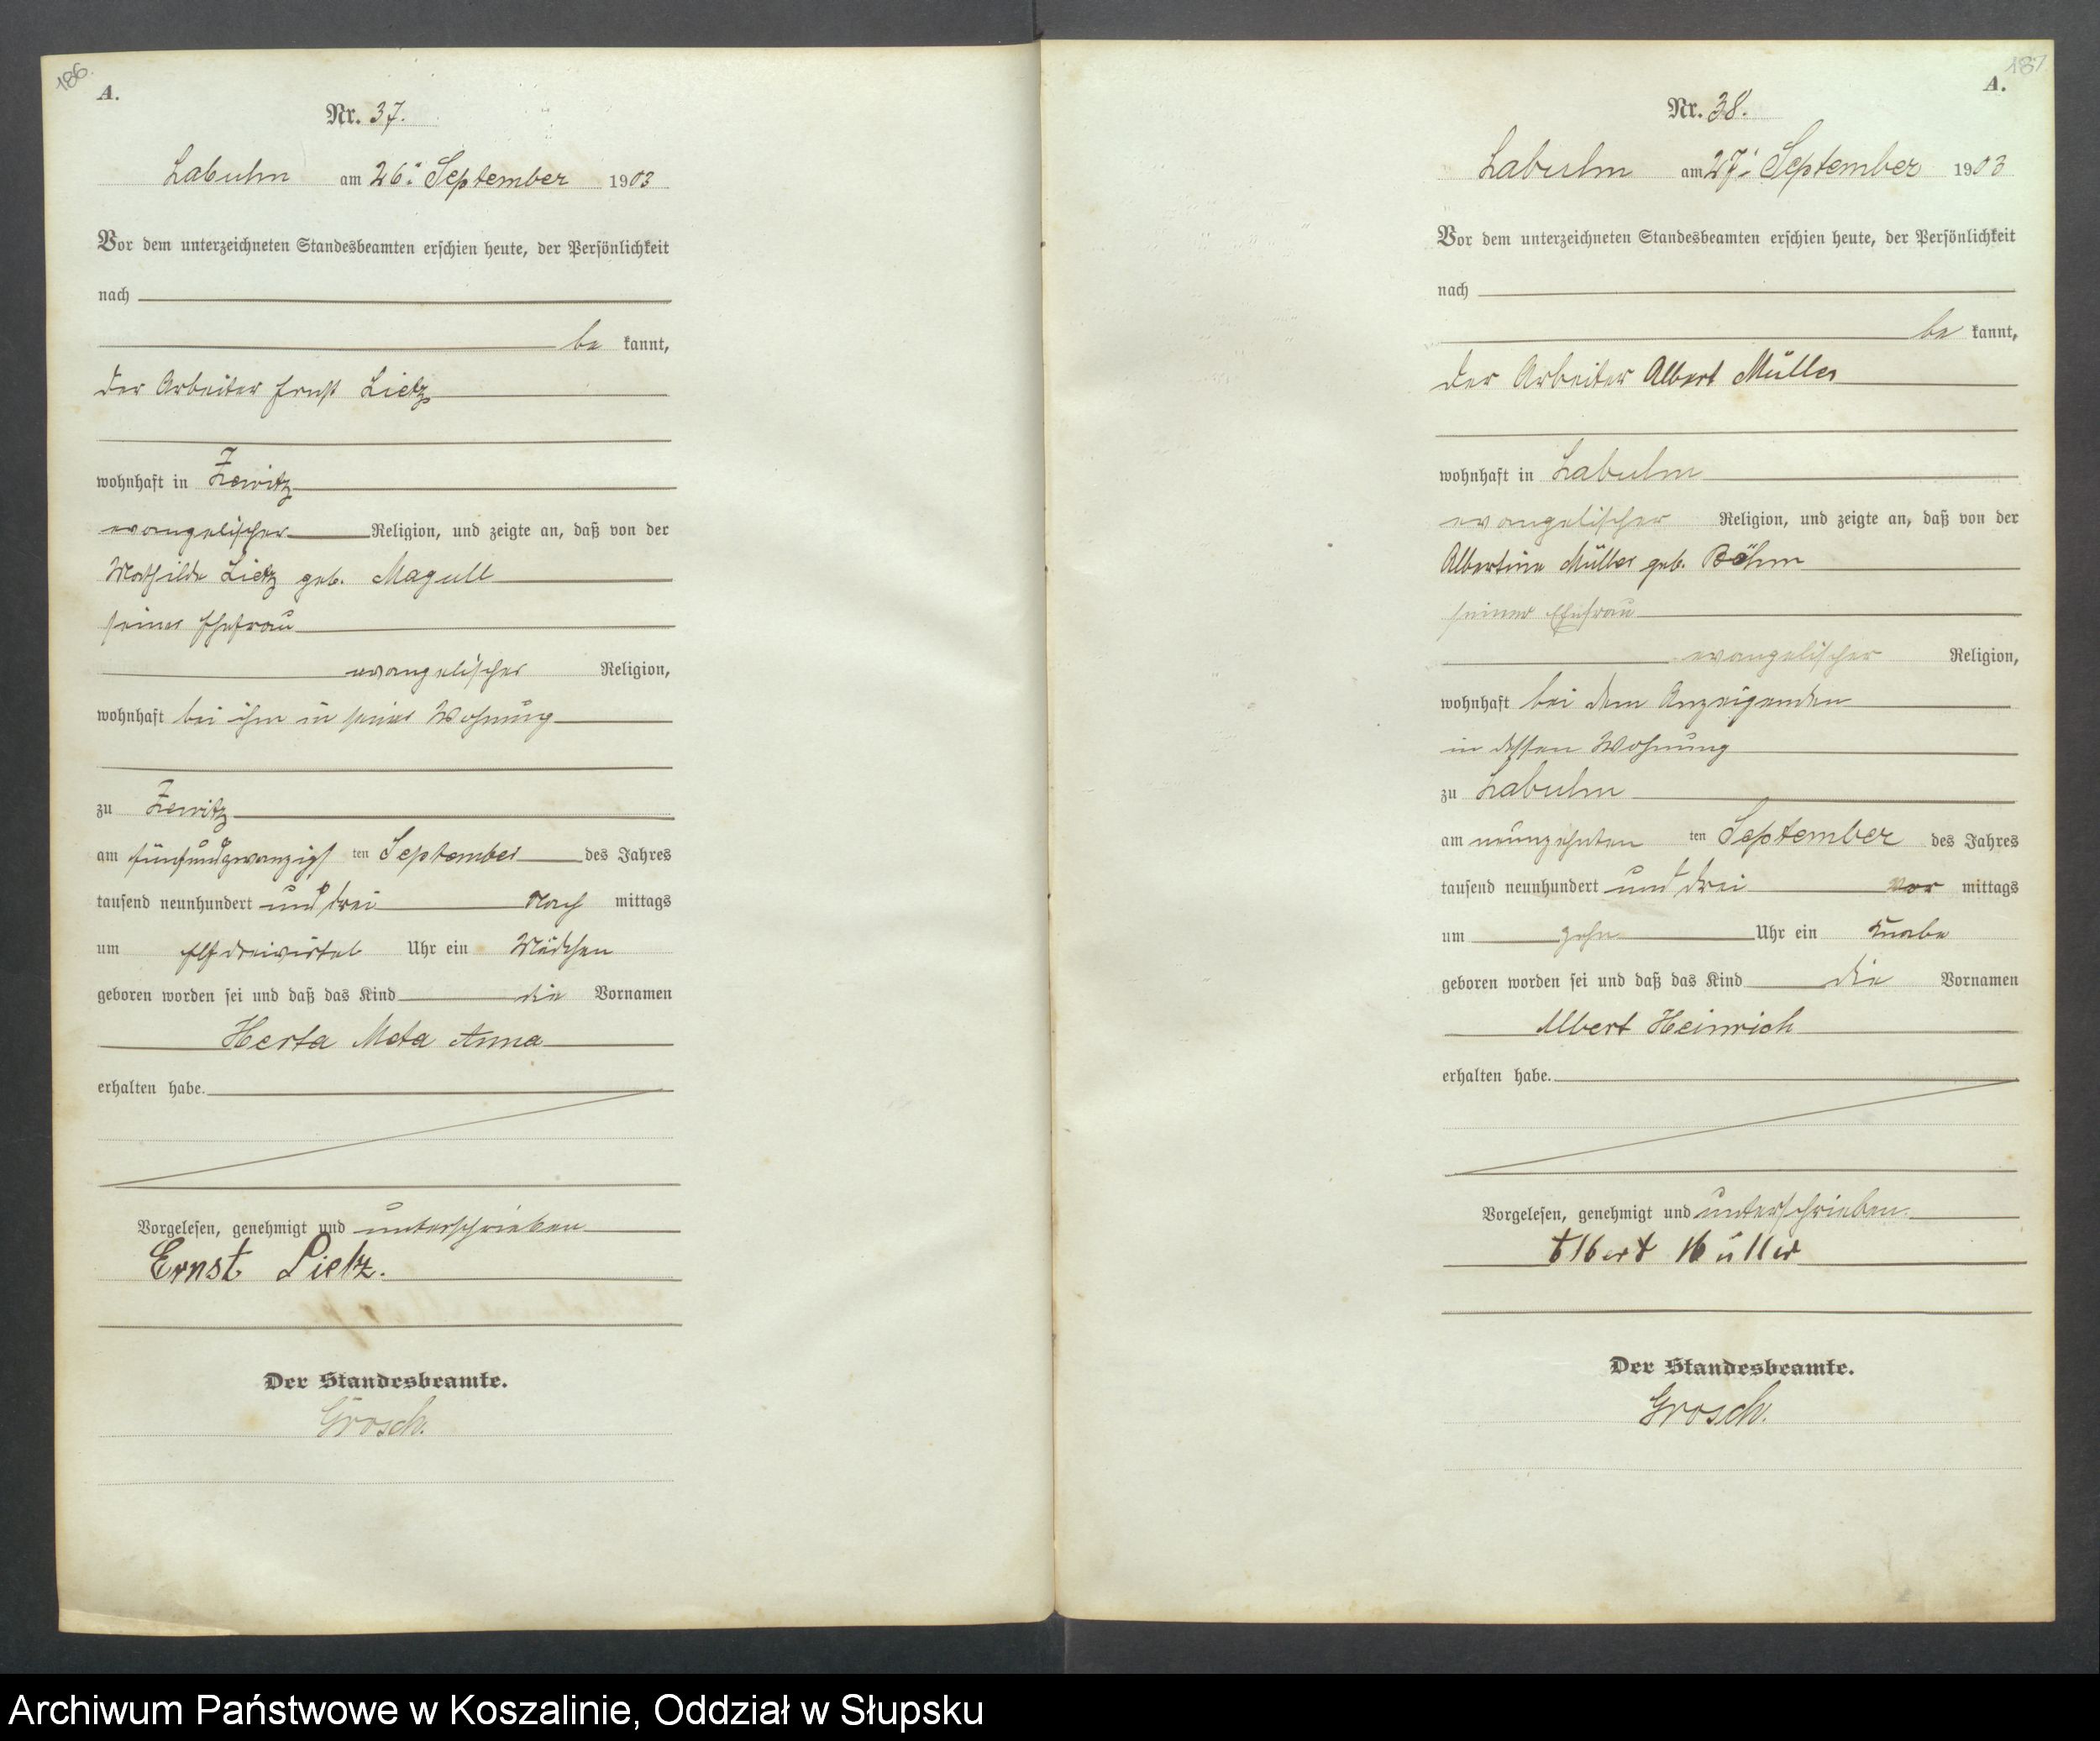 186.
A.
Nr. 37.
Labuhn am 26. September 1903
Vor dem unterzeichneten Standesbeamten erschien heute, der Persönlichkeit
nach
be kannt,
der Arbeiter Ernst Lietz
wohnhaft in Zewitz
evangelischer Religion, und zeigte an, daß von der
Mathilde Lietz geb. Magull
seiner Ehefrau
evangelischer Religion,
wohnhaft bei ihm in seiner Wohnung
zu Zewitz
am fünfundzwanzigs ten September des Jahres
tausend neunhundert und drei Nach mittags
um elf dreiviertel Uhr ein Mädchen
geboren worden sei und daß das Kind die Vornamen
Herta Meta Anna
erhalten habe.
Vorgelesen, genehmigt und unterschrieben
Ernst Lietz.
Der Standesbeamte.
Grosch.
187
A.
Nr. 38.
Labuhn am 27. September 1903
Vor dem unterzeichneten Standesbeamten erschien heute, der Persönlichkeit
nach
be kannt,
der Arbeiter Albert Müller
wohnhaft in Labuhn
evangelischer Religion, und zeigte an, daß von der
Albertine Müller geb. Böhm
seiner Ehefrau
evangelischer Religion,
wohnhaft bei dem Anzeigenden
in dessen Wohnung
zu Labuhn
am neunzehnten ten September des Jahres
tausend neunhundert und drei Vor mittags
um zehn Uhr ein Knabe
geboren worden sei und daß das Kind die Vornamen
Albert Heinrich
erhalten habe.
Vorgelesen, genehmigt und unterschrieben.
Albert Müller
Der Standesbeamte.
Grosch.
Archiwum Państwowe w Koszalinie, Oddział w Słupsku